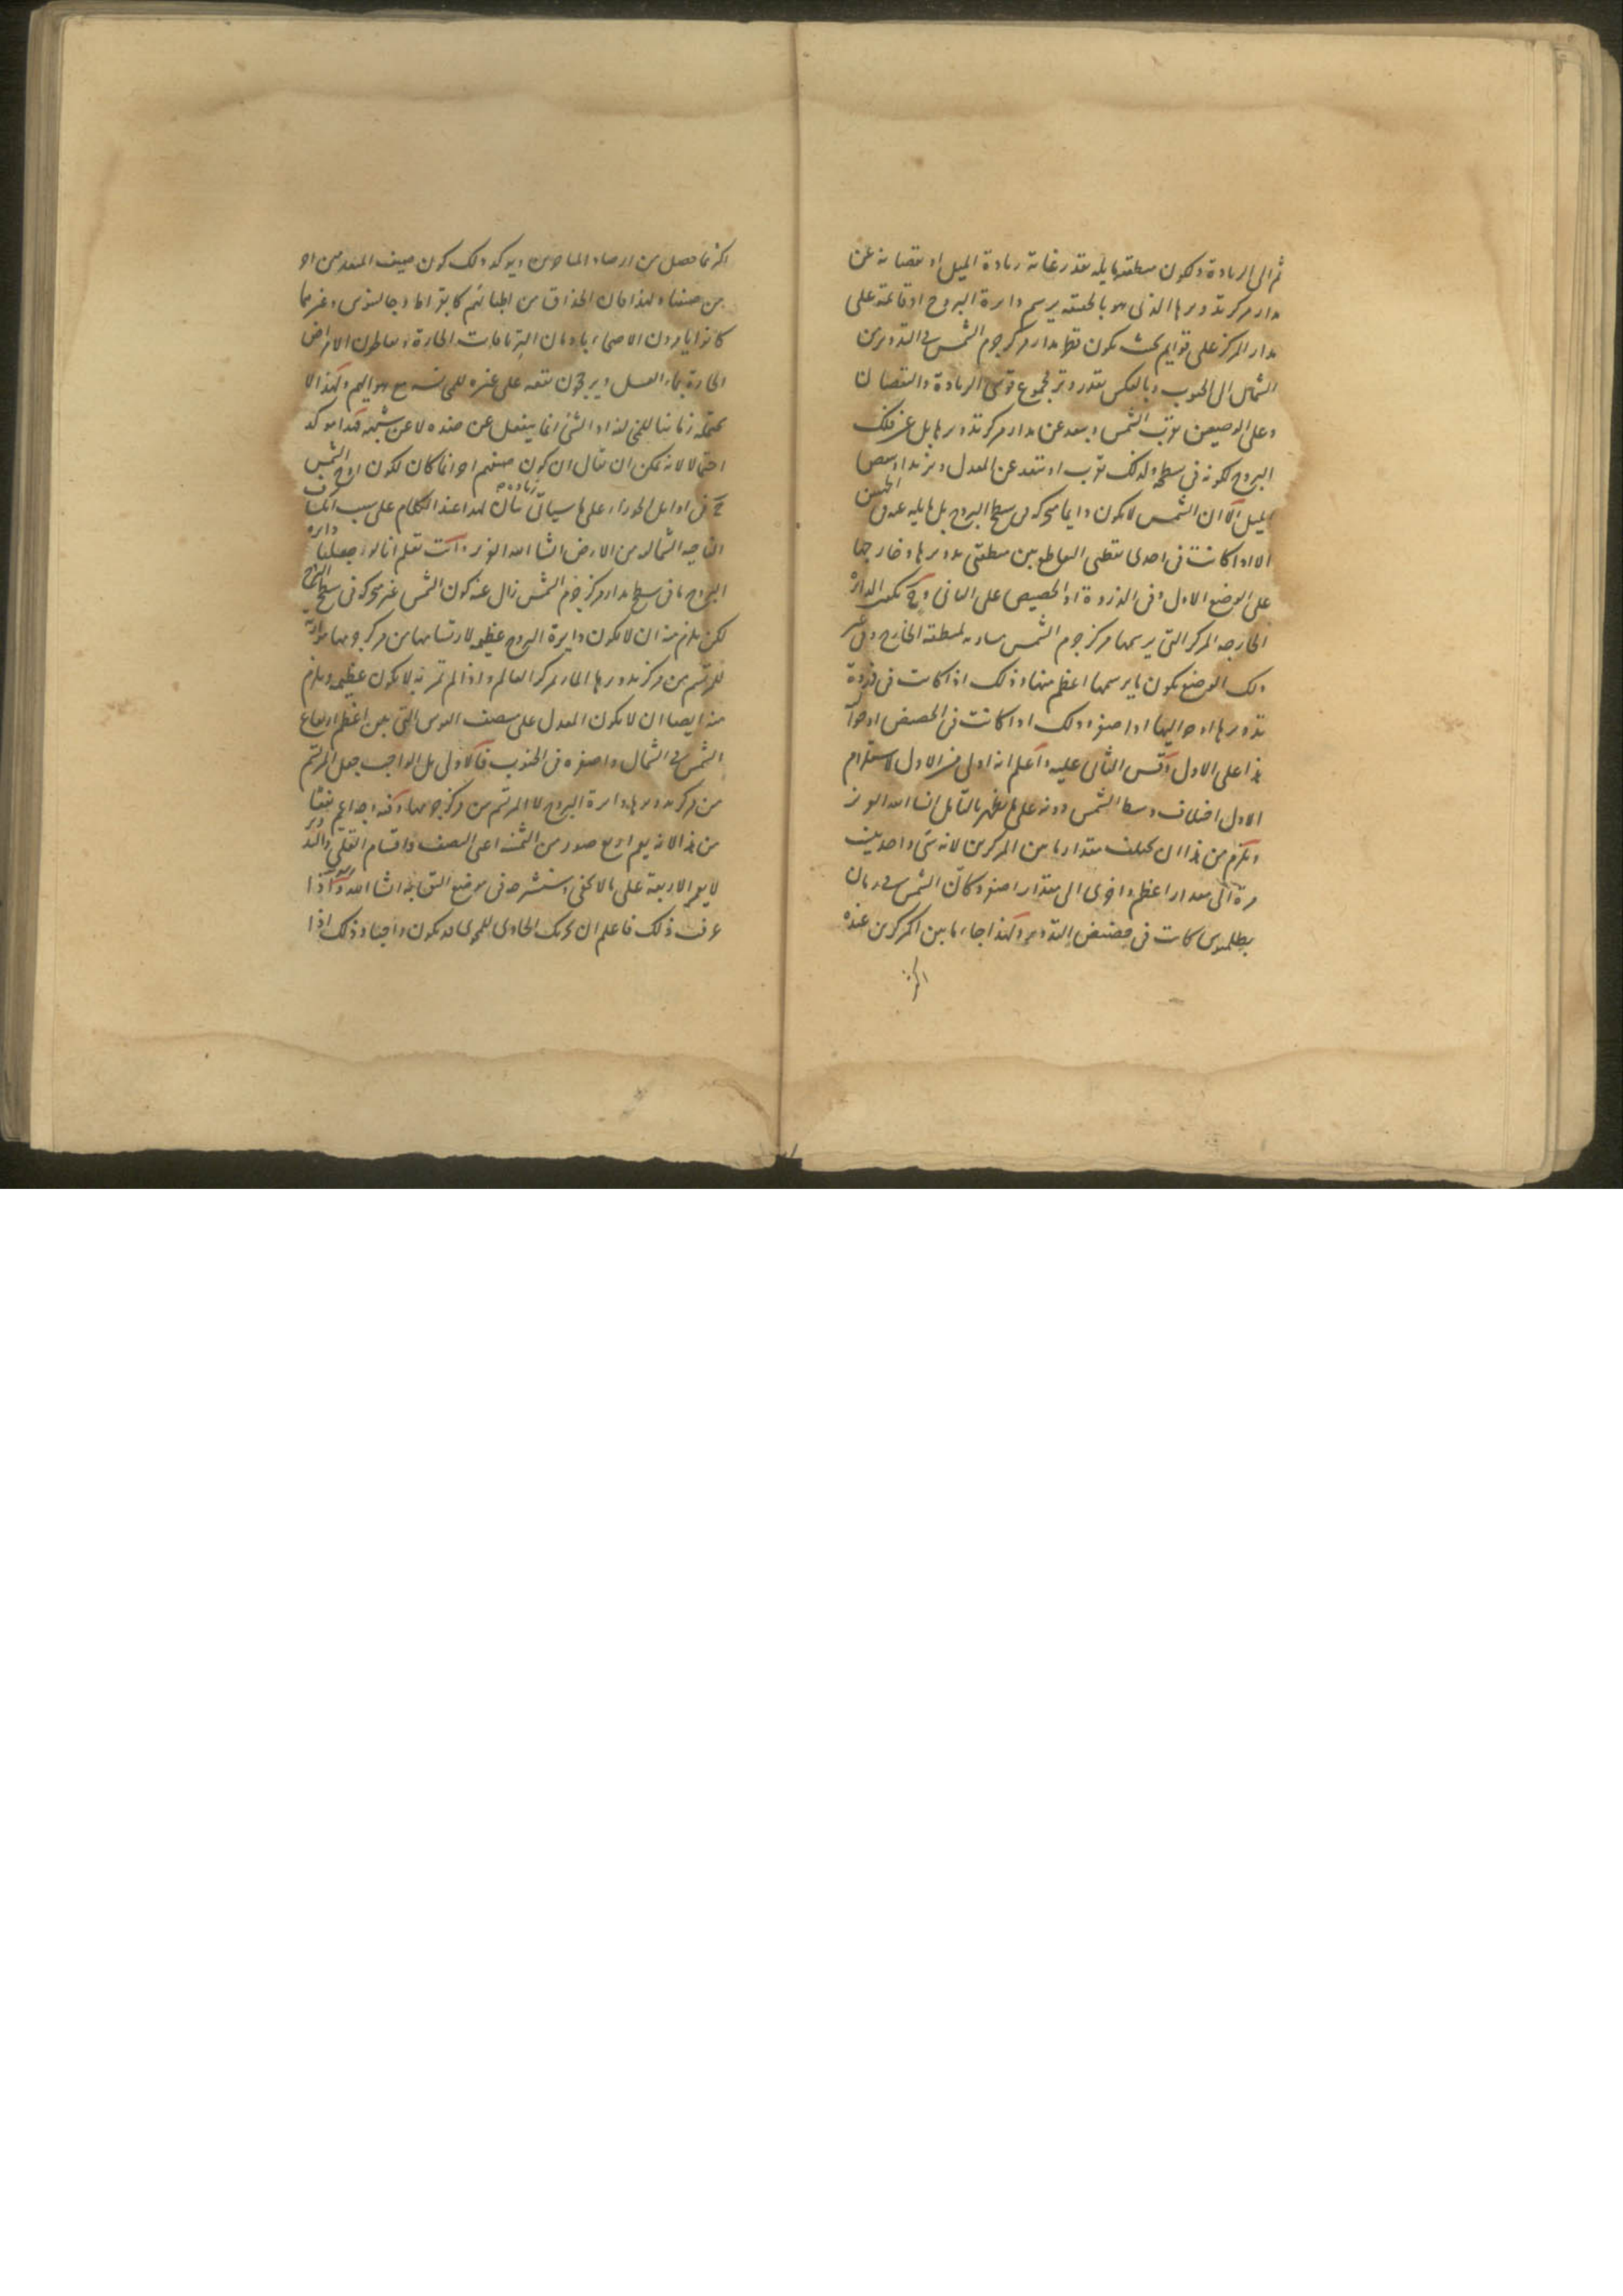 ثم الى الزيادة وتكون منطقته مايلة بقدر غاية زيادة الميل او نقصانه عن
مدار مركز تدويرها الذى هو بالحقيقة يرسم دايرة البروج او قائمة على
مدار المركز على قوايم بحيث يكون قطر مدار مركز جرم الشمس فى التدوير من
الشمال الى الجنوب وبالعكس بقدر وتر مجموع قوسى الزيادة والنقصان
وعلى الوضعين تقرب الشمس وتبعد عن مدار مركز تدويرها بل عن فلك
البروج لكونه فى سطحه ولذلك تقرب او تبعد عن المعدل ويزيد او ينقص
الميل الا ان الشمس لا تكون دايما متحركة فى سطح البروج بل مايلة عنه فى الجهتين
الا اذا كانت فى احدى نقطتى التقاطع بين منطقتى تدويرها وخارجها
على الوضع الاول وفى الذروة او الحضيض على الثانى وح تكون الدايرة
الخارجة المركز التى يرسمها مركز جرم الشمس مساوية لمنطقة الخارج وفى غير
ذلك الوضع يكون ما يرسمها اعظم منها وذلك اذا كانت فى ذروة
تدويرها او حواليها او اصغر وذلك اذا كانت فى الحضيض او حواليه
هذا على الاول وقس الثانى عليه واعلم انه اولى من الاول لاستلزام
الاول اختلاف وسط الشمس دونه على ما يظهر بالتامل ان شا الله العزيز
ويلزم من هذا ان يختلف مقدار ما بين المركزين لانه شى واحد يثبت
مرة الى مقدار اعظم واخرى الى مقدار اصغر وكان الشمس فى زمان
بطلميوس كانت فى حضيض التدوير ولهذا جاء ما بين المركزين عنده
اكثر
اكثر مما حصل من ارصاد المتاخرين ويؤكد ذلك كون صيف المتقدمين احر
من صيفنا ولهذا كان الحذاق من اطبائهم كابقراط وجالينوس وغيرهما
كانوا يامرون الاصحاء بادمان الترياقات الحارة ويعالجون الامراض
الحارة بماء العسل ويرجحون نفعه على غيره للمناسبة مع هوايهم ولهذا لا
يحتمله زماننا اذ الشئ انما ينفعل عن ضده لا عن شبيهه فهذا يؤكد
احتمالا لانه يمكن ان يقال ان كون صيفهم احر انما كان لكون اوج الشمس
ح فى اوايل الجوزاء على ما سياتى زيادة بيان لهذا عند الكلام على سبب انكشاف
الناحية الشمالية من الارض ان شا الله العزيز وانت تعلم انا لو جعلنا دايرة
البروج ما فى سطح مدار مركز جرم الشمس زال عنه كون الشمس غير متحركة فى سطح البروج
لكن يلزم منه ان لا تكون دايرة البروج عظيمة لارتسامها من مركز جرمها موازية
للمرتسم من مركز تدويرها المار بمركز العالم واذا لم تمر به لا تكون عظيمة ويلزم
منه ايضا ان لا يكون المعدل على منتصف القوس التى بين اعظم ارتفاع
الشمس فى الشمال واصغره فى الجنوب فالاولى بل الواجب جعل المرتسم
من مركز تدويرها دايرة البروج لا المرتسم من مركز جرمها
من هذا لانه يعم اربع صور من الثمنية اعنى النصف واقسام
لا يعم الاربعة على ما لا يخفى وسنشرحه فى موضع ان شا الله واذا
عرفت ذلك فاعلم ان تحريك الحاوى للمحوى قد يكون واجبا وذلك اذا